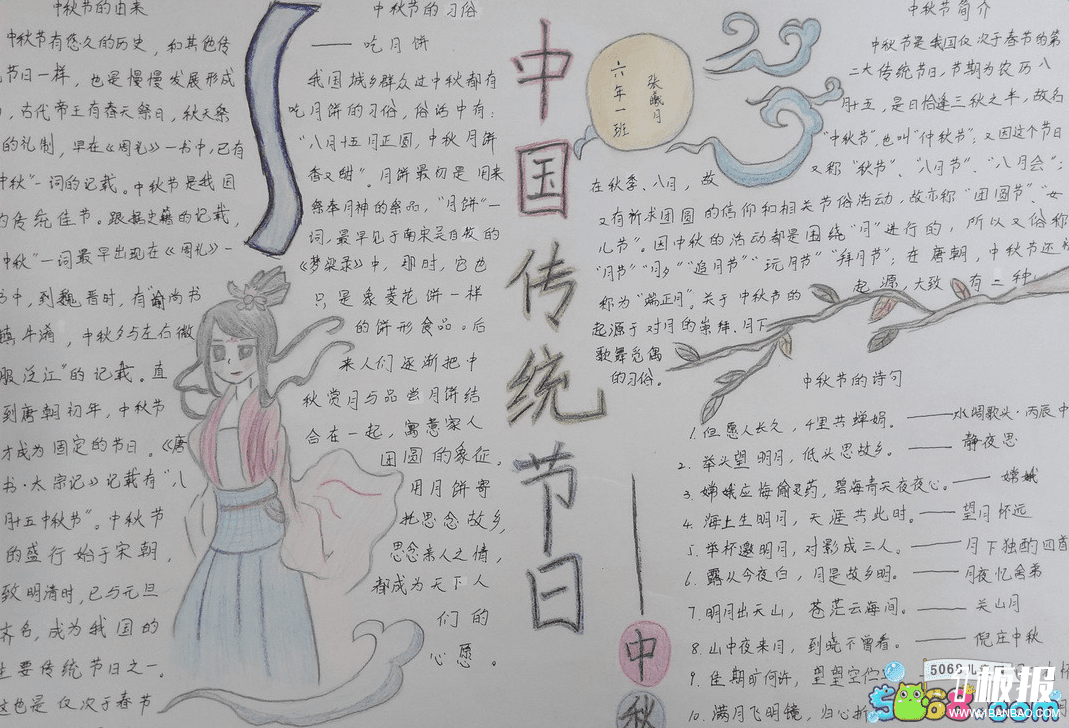 中秋节的由来
中秋节有悠久的历史，和其他传
节日一样，也是慢慢发展形成
，古代帝王有春天祭日，秋天祭
的礼制，早在《周礼》一书中，已有
中秋”一词的记载。中秋节是我国
的传统佳节。跟据史籍的记载，
中秋”一词最早出现在《周礼》一
书中，到魏晋时，有“谕尚书
镇牛渚，中秋夕与左右微
服泛江”的记载。直
到唐朝初年，中秋节
才成为固定的节日。《唐
书·太宗记》记载有“八
月十五中秋节”。中秋节
的盛行始于宋朝，
致明清时，已与元旦
齐名，成为我国的
主要传统节日之一。
这也是仅次于春节
中秋节的习俗
—— 吃月饼
我国城乡群众过中秋都有
吃月饼的习俗，俗话中有：
“八月十五月正圆，中秋月饼
香又甜”。月饼最初是用来
祭奉月神的祭品，“月饼”一
词，最早见于南宋吴自牧的
《梦梁录》中，那时，它也
只是象菱花饼一样
的饼形食品。后
来人们逐渐把中
秋赏月与品尝月饼结
合在一起，寓意家人
团圆的象征。
用月饼寄
托思念故乡，
思念亲人之情，
都成为天下人
们的
心愿。
中国传统节日
——中秋
六年一班
张曦月
中秋节简介
中秋节是我国仅次于春节的第
二大传统节日，节期为农历八
月十五，是日恰逢三秋之半，故名
“中秋节”，也叫“仲秋节”；又因这个节日
在秋季、八月，故又称“秋节”、“八月节”、“八月会”；
又有祈求团圆的信仰和相关节俗活动，故亦称“团圆节”、“女
儿节”。因中秋的活动都是围绕“月”进行的，所以又俗称
“月节”“月夕”“追月节”“玩月节”“拜月节”；在唐朝，中秋节还被
称为“端正月”。关于中秋节的起源，大致有三种：
起源于对月的崇拜、月下
歌舞觅偶
的习俗。
中秋节的诗句
1. 但愿人长久，千里共蝉娟。——水调歌头·丙辰中
2. 举头望明月，低头思故乡。—— 静夜思
3. 嫦娥应悔偷灵药，碧海青天夜夜心。—— 嫦娥
4. 海上生明月，天涯共此时。—— 望月怀远
5. 举杯邀明月，对影成三人。—— 月下独酌四首
6. 露从今夜白，月是故乡明。—— 月夜忆舍弟
7. 明月出天山，苍茫云海间。—— 关山月
8. 山中夜来月，到晓不曾看。—— 倪庄中秋
9. 佳期旷何许，望望空伫
10. 满月飞明镜，归心折
5068儿
板报
WWW.1BANBAO.COM